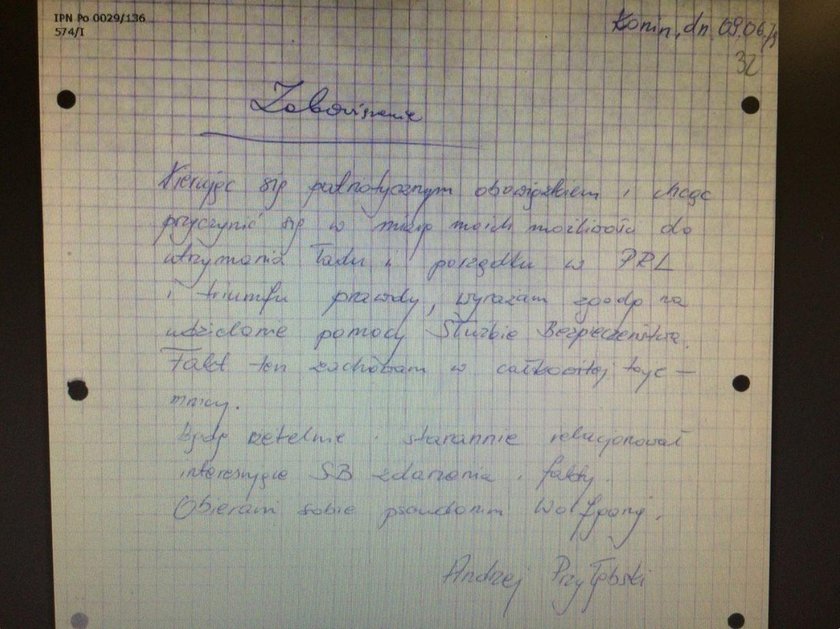 IPN Po 0029/136
574/I
Konin, dn. 09.06.79
32
Zobowiązanie
Kierując się patriotycznym obowiązkiem i chcąc
przyczynić się w miarę moich możliwości do
utrzymania ładu i porządku w PRL
i triumfu prawdy, wyrażam zgodę na
udzielanie pomocy Służbie Bezpieczeństwa.
Fakt ten zachowam w całkowitej taje-
mnicy.
Będę rzetelnie i starannie relacjonował
interesujące SB zdarzenia i fakty.
Obieram sobie pseudonim Wolfgang.
Andrzej Przyłębski